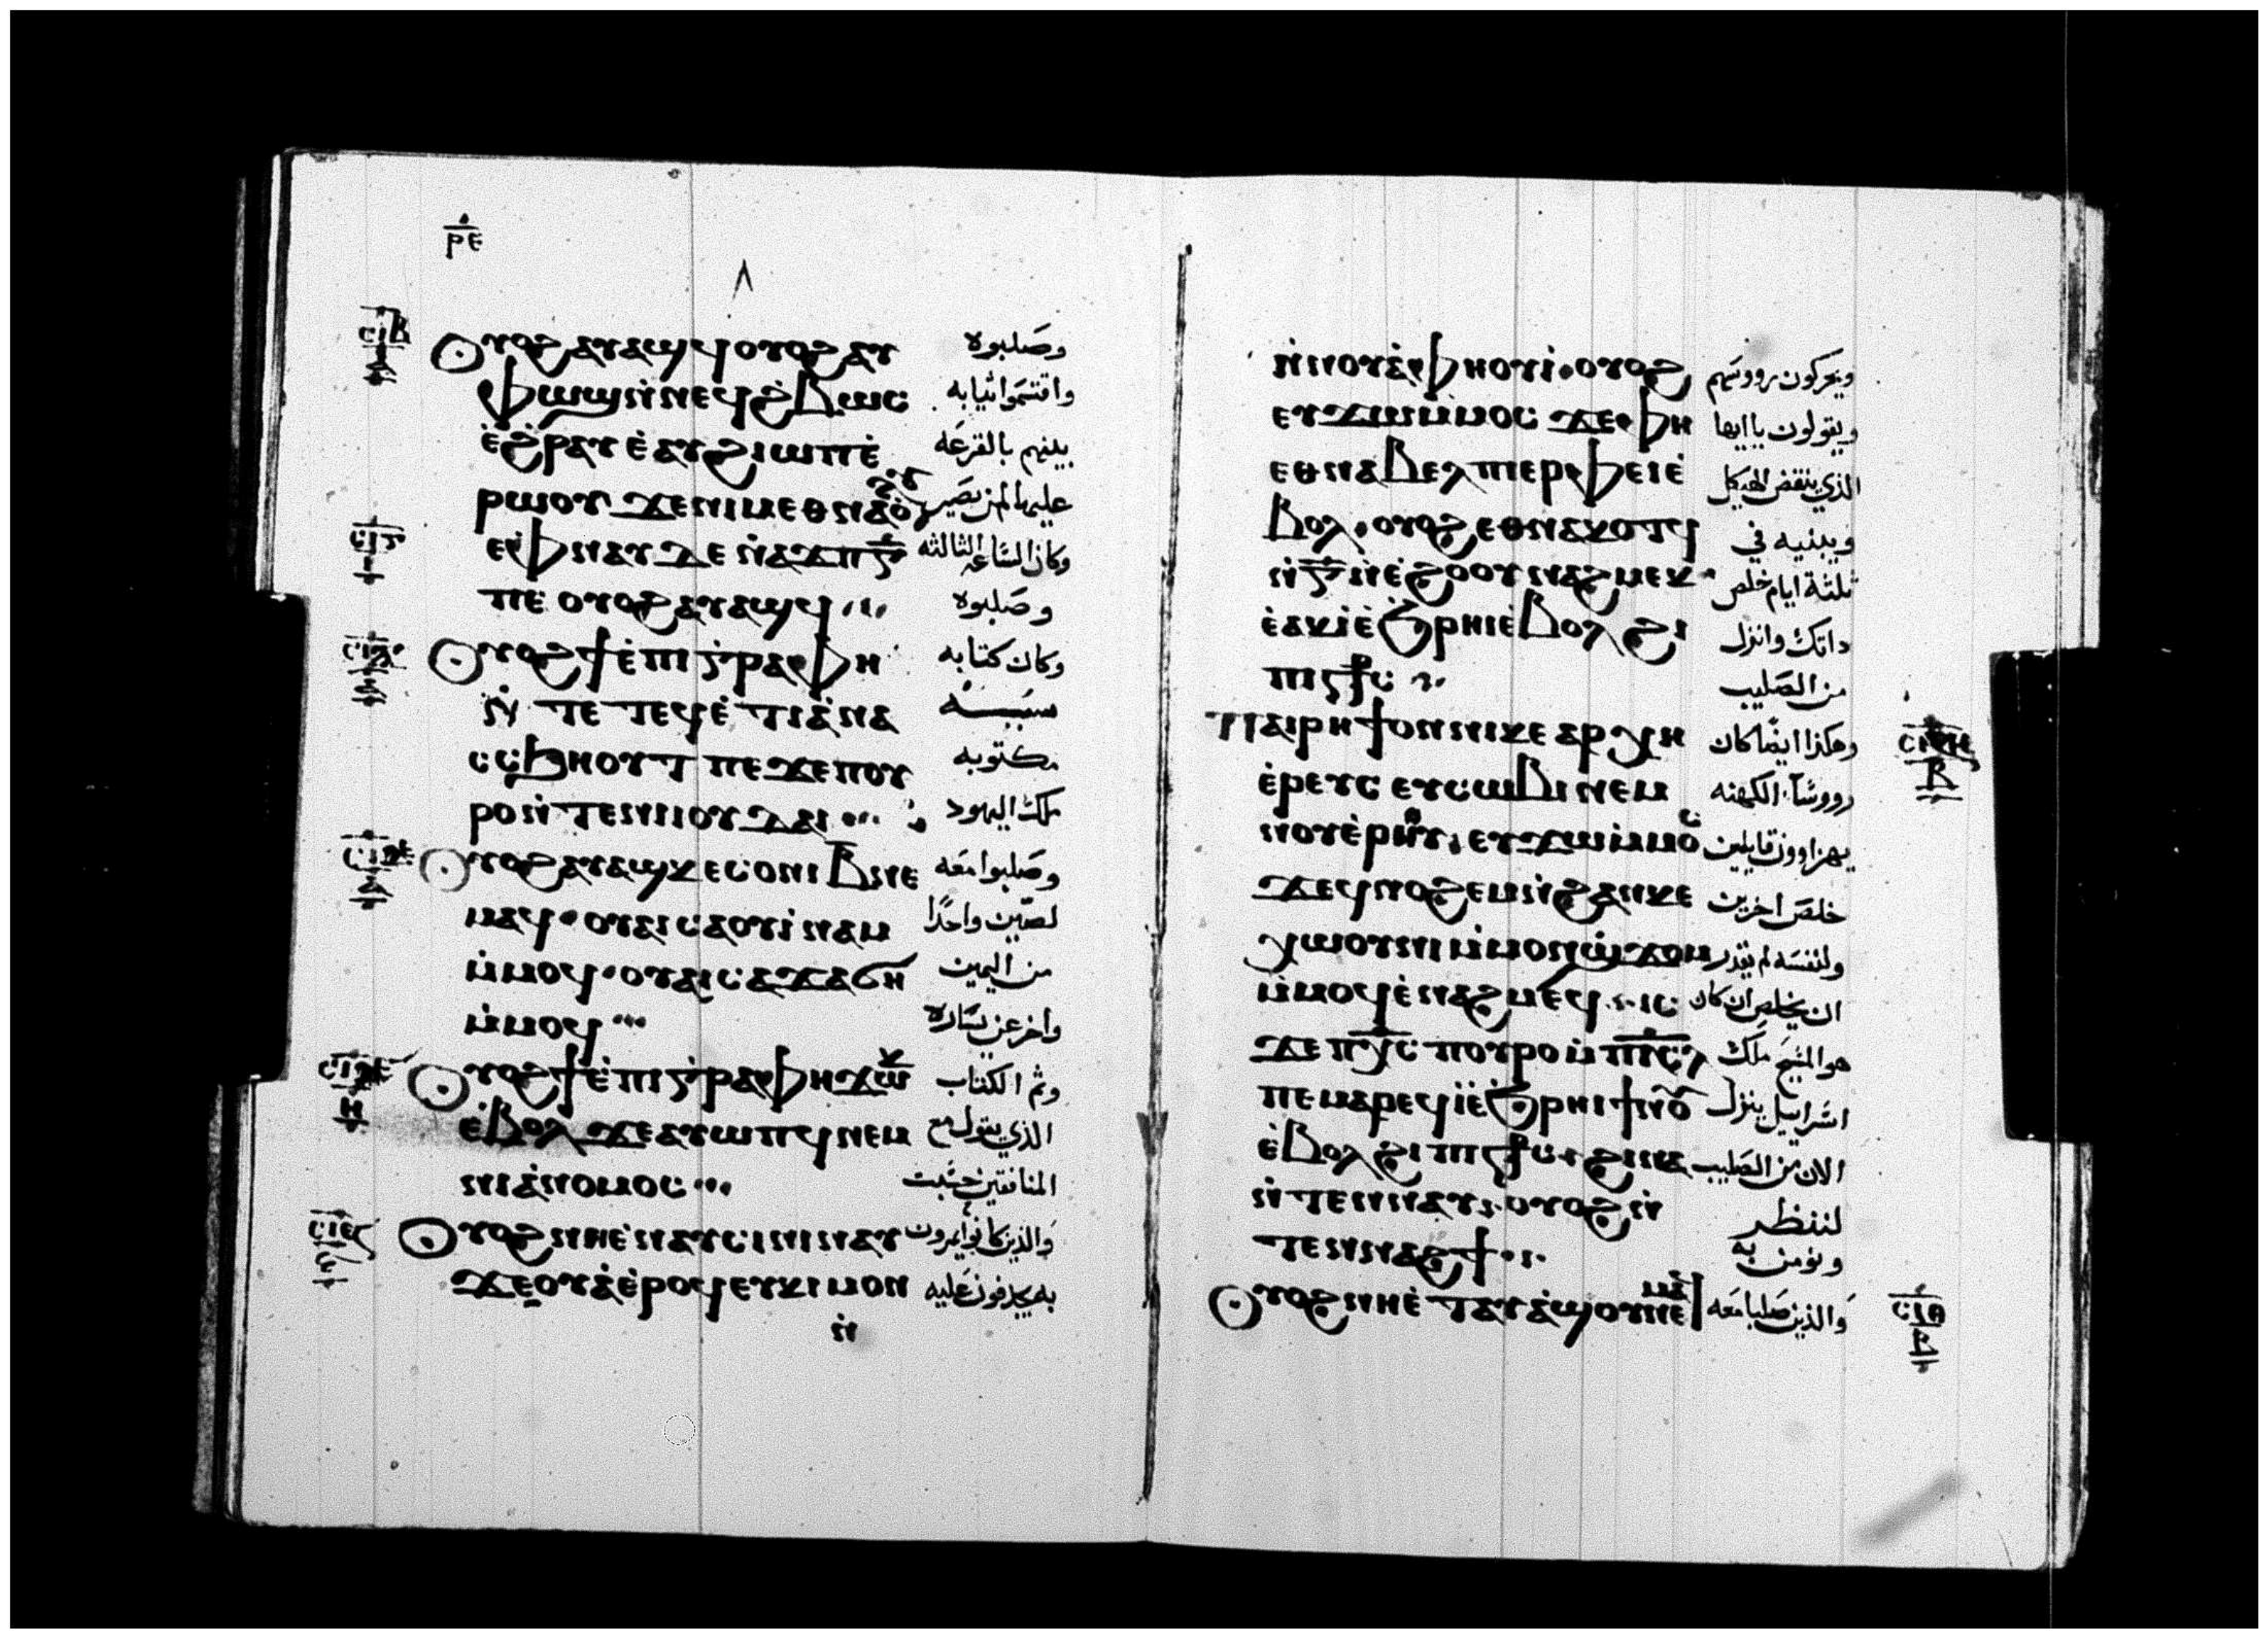 ⲣⲉ
ⲥⲓⲃ
ⲟⲩⲟϩ ⲁⲩⲁϣϥ ⲟⲩⲟϩ ⲁⲩ وصلبوه
ⲫⲱϣ ⲛ̀ⲛⲉϥϩ̀ⲃⲱⲥ واقتسموا ثيابه
ⲉ̀ϩ̀ⲣⲁⲩ ⲉ̀ⲁⲩϩⲓⲱⲡ ⲉ̀ بينهم بالقرعه
ⲣⲱⲟⲩ ϫⲉ ⲛⲓⲙ ⲉⲑⲛⲁϭⲟⲩ عليها لمن يصير
ⲛⲉ ⲫⲛⲁⲩ ⲇⲉ ⲛ̀ⲁϫⲡ ⲅ̅ وكان الساعه الثالثه
ⲡⲉ ⲟⲩⲟϩ ⲁⲩⲁϣϥ وصلبوه
ⲟⲩⲟϩ ϯⲉ̀ⲡⲓⲅⲣⲁⲫⲏ وكان كتابه
ⲛ̀ⲧⲉ ⲧⲉϥⲉ̀ⲧⲓⲁ̀ ⲛⲁ
ⲥⲥϧⲏⲟⲩⲧ ⲡⲉ ϫⲉ ⲡⲟⲩ مكتوبه
ⲣⲟ ⲛ̀ⲧⲉ ⲛⲓⲓⲟⲩⲇⲁⲓ ملك اليهود
ⲟⲩⲟϩ ⲁⲩⲁϣ ⲕⲉⲥⲟⲛⲓ ⲃ̅ ⲛⲉ وصلبوا معه
ⲙⲁϥ ⲟⲩⲁⲓ ⲥⲁⲟⲩⲓ̀ⲛⲁⲙ لصين واحدا
ⲙ̀ⲙⲟϥ ⲟⲩⲁⲓ ⲥⲁϫⲁϭⲏ من اليمين
ⲙ̀ⲙⲟϥ واخر عن يساره
ⲟⲩⲟϩ ϯⲉ̀ⲡⲓⲅⲣⲁⲫⲏ ϫⲱⲕ وتم الكتاب
ⲉ̀ⲃⲟⲗ ϫⲉ ⲁⲩⲱⲡϥ ⲛⲉⲙ الذي يقول مع
ⲛⲓⲁ̀ⲛⲟⲙⲟⲥ المنافقين حسبت
ⲟⲩⲟϩ ⲛⲏ ⲉ̀ⲛⲁⲩⲥⲓⲛⲓ ⲛⲁⲩ والذين كانوا يمرون
ϫⲉⲟⲩⲁ̀ ⲉ̀ⲣⲟϥ ⲉⲩⲕⲓⲙ ⲟⲛ به يجدفون عليه
ⲛ̀
ⲛ̀ⲛⲟⲩⲁ̀ⲫⲏⲟⲩⲓ̀ ⲟⲩⲟϩ ويحركون رووسهم
ⲉⲩϫⲱ ⲙ̀ⲙⲟⲥ ϫⲉ ⲫⲏ ويقولون يا ايها
ⲉⲑⲛⲁⲃⲉⲗ ⲡⲉⲣⲫⲉⲓ ⲉ̀ الذي ينقض الهيكل
ⲃⲟⲗ ⲟⲩⲟϩ ⲉⲑⲛⲁⲕⲟⲧϥ ويبنيه في
ⲛ̀ⲅ̅ ⲛ̀ⲉ̀ϩⲟⲟⲩ ⲛⲁϩⲙⲉⲕ ثلثة ايام خلص
ⲉ̀ⲁⲕⲓ̀ ⲉ̀ϧⲣⲏⲓ ⲉ̀ⲃⲟⲗ ϩⲓ داتك وانزل
ⲡⲓⲥ̅ϯⲥ من الصليب
ⲡⲁⲓⲣⲏϯ ⲟⲛ ⲛⲓⲕⲉ ⲁⲣⲭⲏ وهكذا ايضا كان
ⲉ̀ⲣⲉⲩⲥ ⲉⲩⲥⲱⲃⲓ ⲛⲉⲙ رووسا الكهنه
ⲛⲟⲩⲉ̀ⲣⲏⲟⲩ ⲉⲩϫⲱ ⲙ̀ⲙⲟⲥ يهزاوون قايلين
ϫⲉ ⲁϥⲛⲟϩⲉⲙ ⲛ̀ϩⲁⲛⲕⲉ خلص اخرين
ⲭⲱⲟⲩⲛⲓ ⲙ̀ⲙⲟⲛ ϣϫⲟⲙ ولنفسه لم يقدر
ⲙ̀ⲙⲟϥ ⲉ̀ⲛⲁϩⲙⲉϥ ⲓⲥ ان يخلص ان كان
ϫⲉ ⲡⲭ̅ⲥ ⲡⲟⲩⲣⲟ ⲙ̀ⲡⲓⲥ̅ⲗ هو المسيح ملك
ⲡⲉ ⲙⲁⲣⲉϥⲓ̀ ⲉ̀ϧⲣⲏⲓ ϯⲛⲟⲩ اسراييل ينزل
ⲉ̀ⲃⲟⲗ ϩⲓ ⲡⲓⲥ̅ϯⲥ ϩⲓⲛⲁ الان من الصليب
ⲛ̀ⲧⲉⲛⲛⲁⲩ ⲟⲩⲟϩ ⲛ̀ لننظر
ⲧⲉⲛⲛⲁϩϯ ونومن به
ⲟⲩⲟϩ ⲛⲏ ⲉ̀ⲧⲁⲩⲁ̀ϣⲟⲩ ⲛⲉⲙⲁϥ والذين صلبا معه